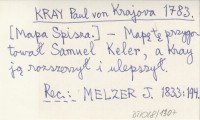 KRAY Paul von Krajova 1783.
[Mapa Spisza.] – Mapę przygo-
tował Samuel Keler, a Kray
ją rozszerzył i ulepszył.
Rec.: MELZER J. 1833:194.